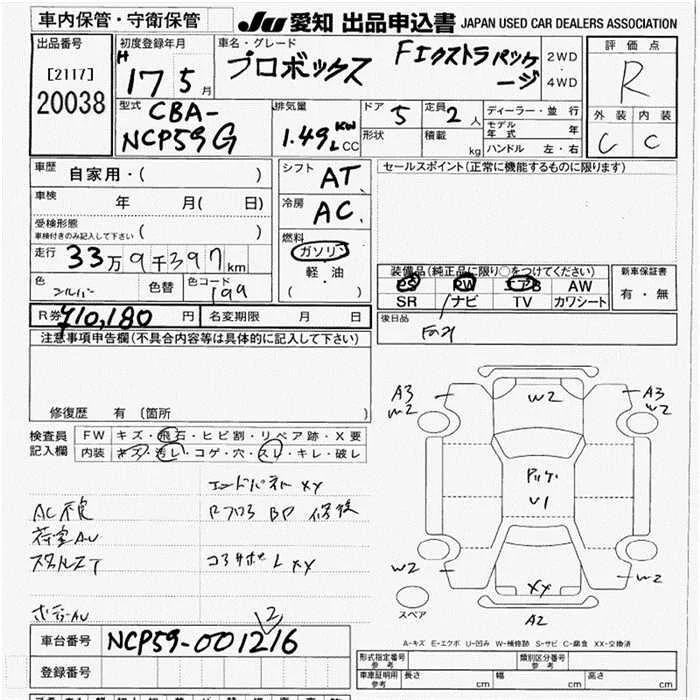 車内保管・守衛保管
JU 愛知 出品申込書 JAPAN USED CAR DEALERS ASSOCIATION
出品番号
[2117]
20038
初度登録年月
H 17 5月
車名・グレード
プロボックス
Fエクストラパッケージ
2WD
・
4WD
評価点
R
外装 内装
C C
型式
CBA-
NCP59G
排気量
1.49 KW L CC
ドア 5
定員 2人
形状
積載 kg
ディーラー・並行
モデル年式 年
ハンドル 左・右
車歴
自家用・( )
車検
年 月( 日)
受検形態
車検付きのみ記入して下さい ( )
走行 33万9千397km
色 シルバー
色替
色コード 199
R券 ¥10,180 円
名変期限 月 日
シフト AT
冷房 AC
燃料
ガソリン
軽・油
( )
セールスポイント(正常に機能するものに限ります)
装備品(純正品に限り○をつけてください)
PS PW エアB AW
SR ナビ TV カワシート
新車保証書
有・無
後日品
注意事項申告欄(不具合内容等は具体的に記入して下さい)
修復歴 有(箇所 )
検査員記入欄
FW キズ・飛石・ヒビ割・リペア跡・X要
内装 キズ・汚レ・コゲ・穴・スレ・キレ・破レ
エンドパネル XY
AC不良
荷室AU
XY
ボデーAU
2
A3
W2
W2
A3
W2
U1
W2
W2
XY
A2
スペア
A-キズ E-エクボ U-凹み W-補修跡 S-サビ C-腐食 XX-交換済
車台番号 NCP59-001216
登録番号
形式指定番号 参考
類別区分番号 参考
車庫証明用 参考 長さ cm 幅 cm 高さ cm